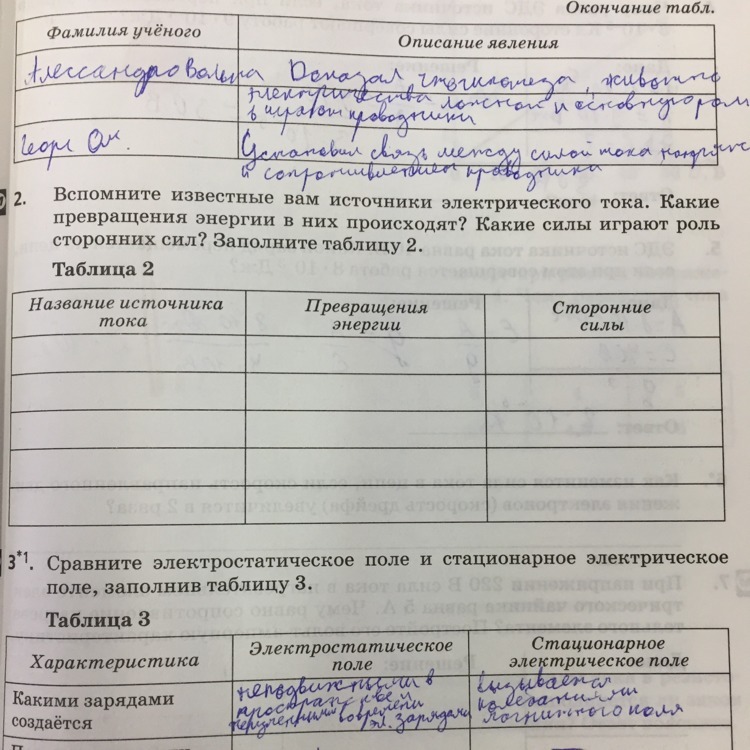 Окончание табл.
Фамилия учёного
Описание явления
Алессандро Вольта Доказал что гипотеза „животно
электричества ложной и основную роль
в играют проводники
Георг Ом.
Установил связь между силой тока напряже
и сопротивлением проводника
2. Вспомните известные вам источники электрического тока. Какие
превращения энергии в них происходят? Какие силы играют роль
сторонних сил? Заполните таблицу 2.
Таблица 2
Название источника
тока
Превращения
энергии
Сторонние
силы
3*1. Сравните электростатическое поле и стационарное электрическое
поле, заполнив таблицу 3.
Таблица 3
Характеристика
Электростатическое
поле
Стационарное
электрическое поле
Какими зарядами
создаётся
неподвижными в
пространстве и
неизменными во времени
эл. зарядами
вызывается
колебаниями
магнитного поля